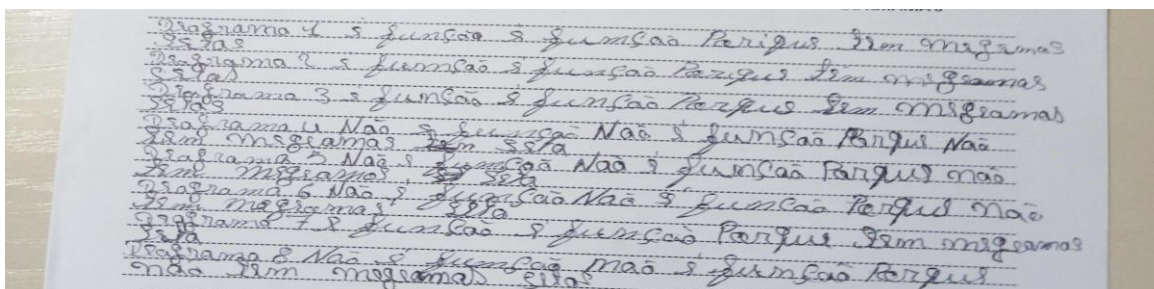 Diagrama 1 é função é função Porique tem megramas
setas
Diagrama 2 é fumção é função Porque tem megramas
setas
Diagrama 3 é fumção é função Porque tem misgramas
setas
Diagrama 4 Não é fumção Não é fumção Porque Não
tem megramas tem seta
Diagrama 5 Não é fumção Não é fumção Porque não
tem migramas seta
Diagrama 6 Não é função Não é fumção Porque não
tem magramas seta
Diagrama 7 é fumção é fumção Porque tem megramas
seta
Diagrama 8 Não é fumção não é fumção Porque
não tem megramas setas